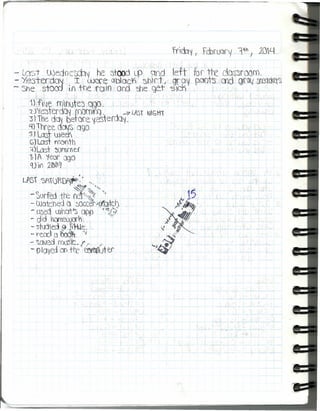 Friday, February 7th, 2014
- Last Wednesday he stood up and left for the classroom.
- Yesterday I wore a black shirt, gray pants and gray sneakers
- She stood in the rain and she get sick
1) five minutes ago.
2) Yesterday morning → LAST NIGHT
3) The day before yesterday.
4) Three days ago
5) Last week
6) Last month
7) Last summer
8) A year ago
9) in 2009
LAST SATURDAY
- Surfed the net
- Watched a soccer match
- used what's app
- did homework.
- studied a little.
- read a book.
- saved music.
- played on the computer
15